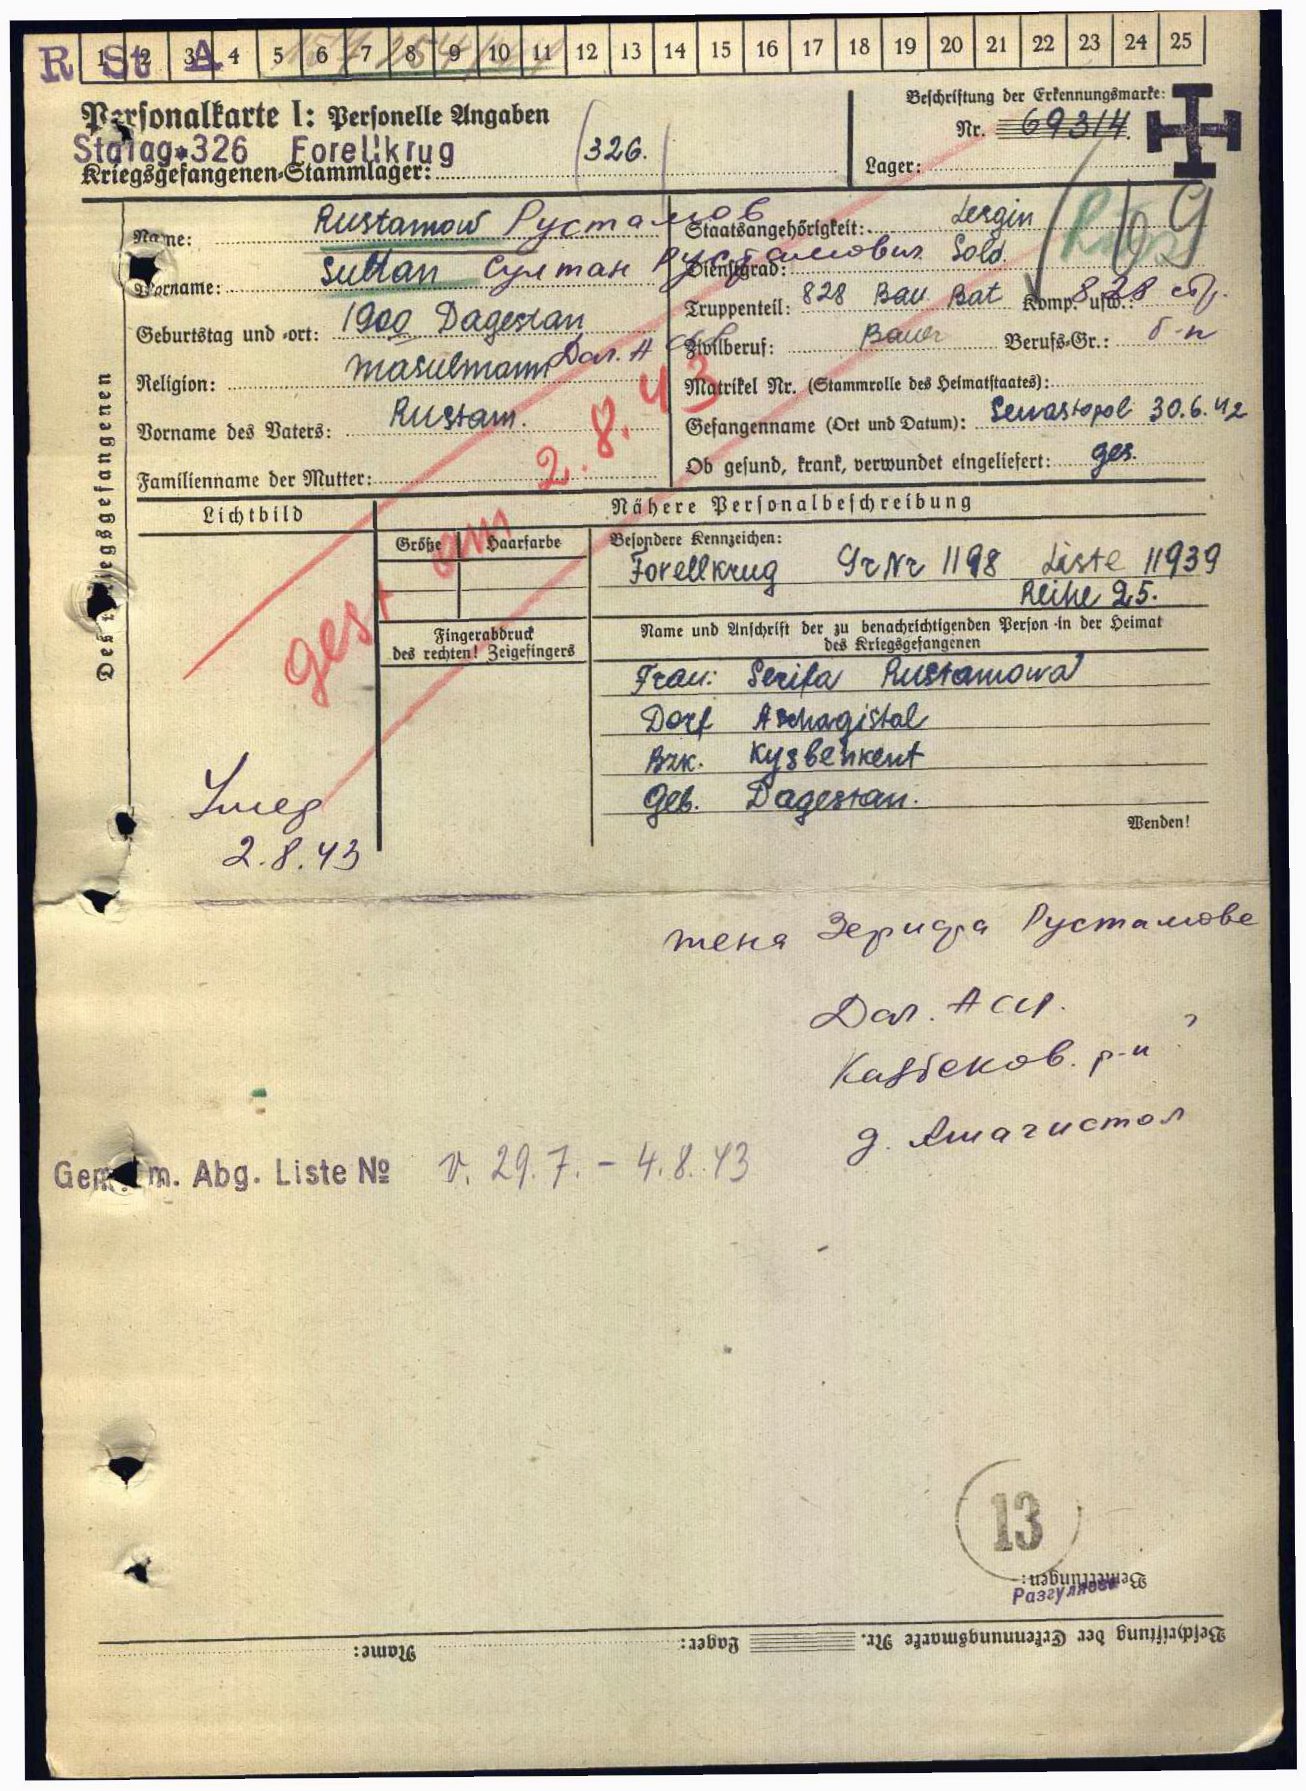 R St A 1 2 3 4 5 6 7 8 9 10 11 12 13 14 15 16 17 18 19 20 21 22 23 24 25
Personalkarte I: Personelle Angaben
Stalag 326 Forellkrug
Kriegsgefangenen-Stammlager: 326.
Beschriftung der Erkennungsmarke:
Nr. 69314.
Lager:
Des Kriegsgefangenen
Name: Rustamow Рустамов
Vorname: Sultan Султан Рустамович
Geburtstag und -ort: 1900 Dagestan
Даг. А
Religion: Masulmann
Vorname des Vaters: Rustam.
Familienname der Mutter:
Staatsangehörigkeit: Lesgin
Dienstgrad: Sold
Truppenteil: 828 Bau Bat Komp. usw.: 828
Zivilberuf: Bauer Berufs-Gr.: б-п
Matrikel Nr. (Stammrolle des Heimatstaates):
Gefangennahme (Ort und Datum): Sewastopol 30.6.42
Ob gesund, krank, verwundet eingeliefert: ges.
gest am 2.8.43
Lichtbild
Nähere Personalbeschreibung
Größe Haarfarbe
Besondere Kennzeichen:
Forellkrug Gr Nr 1198 Liste 11939
Reihe 25.
Fingerabdruck
des rechten! Zeigefingers
Name und Anschrift der zu benachrichtigenden Person in der Heimat
des Kriegsgefangenen
Frau: Serifa Rustamowa
Dorf Aschagistal
Bzk. Kysbenkent
Geb. Dagestan.
Wenden!
Умер
2.8.43
жена Зерифа Рустамове
Даг. АССР.
Казбеков. р-н ?
д. Ашагистал
Gem. m. Abg. Liste № v. 29.7. - 4.8.43
13
Bemerkungen:
Разгуляева
Beschriftung der Erkennungsmarke Nr. Lager: Name: